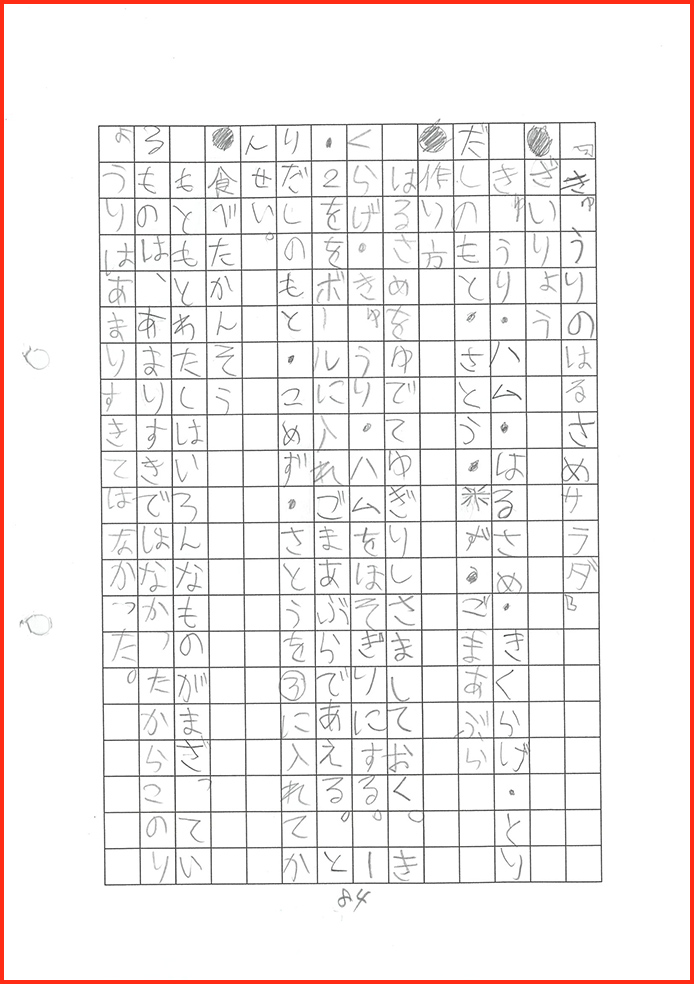 『きゅうりのはるさめサラダ』
●ざいりょう
きゅうり・ハム・はるさめ・きくらげ・とり
だしのもと・さとう・米ず・ごまあぶら
●作り方
はるさめをゆでてゆぎりしさましておく。き
くらげ・きゅうり・ハムをほそぎりにする。1
・2ををボールに入れごまあぶらであえる。と
りだしのもと・こめず・さとうを③に入れてか
んせい。
●食べたかんそう
もともとわたしはいろんなものがまざってい
るものは、あまりすきではなかったからこのり
ょうりはあまりすきてはなかった。
84